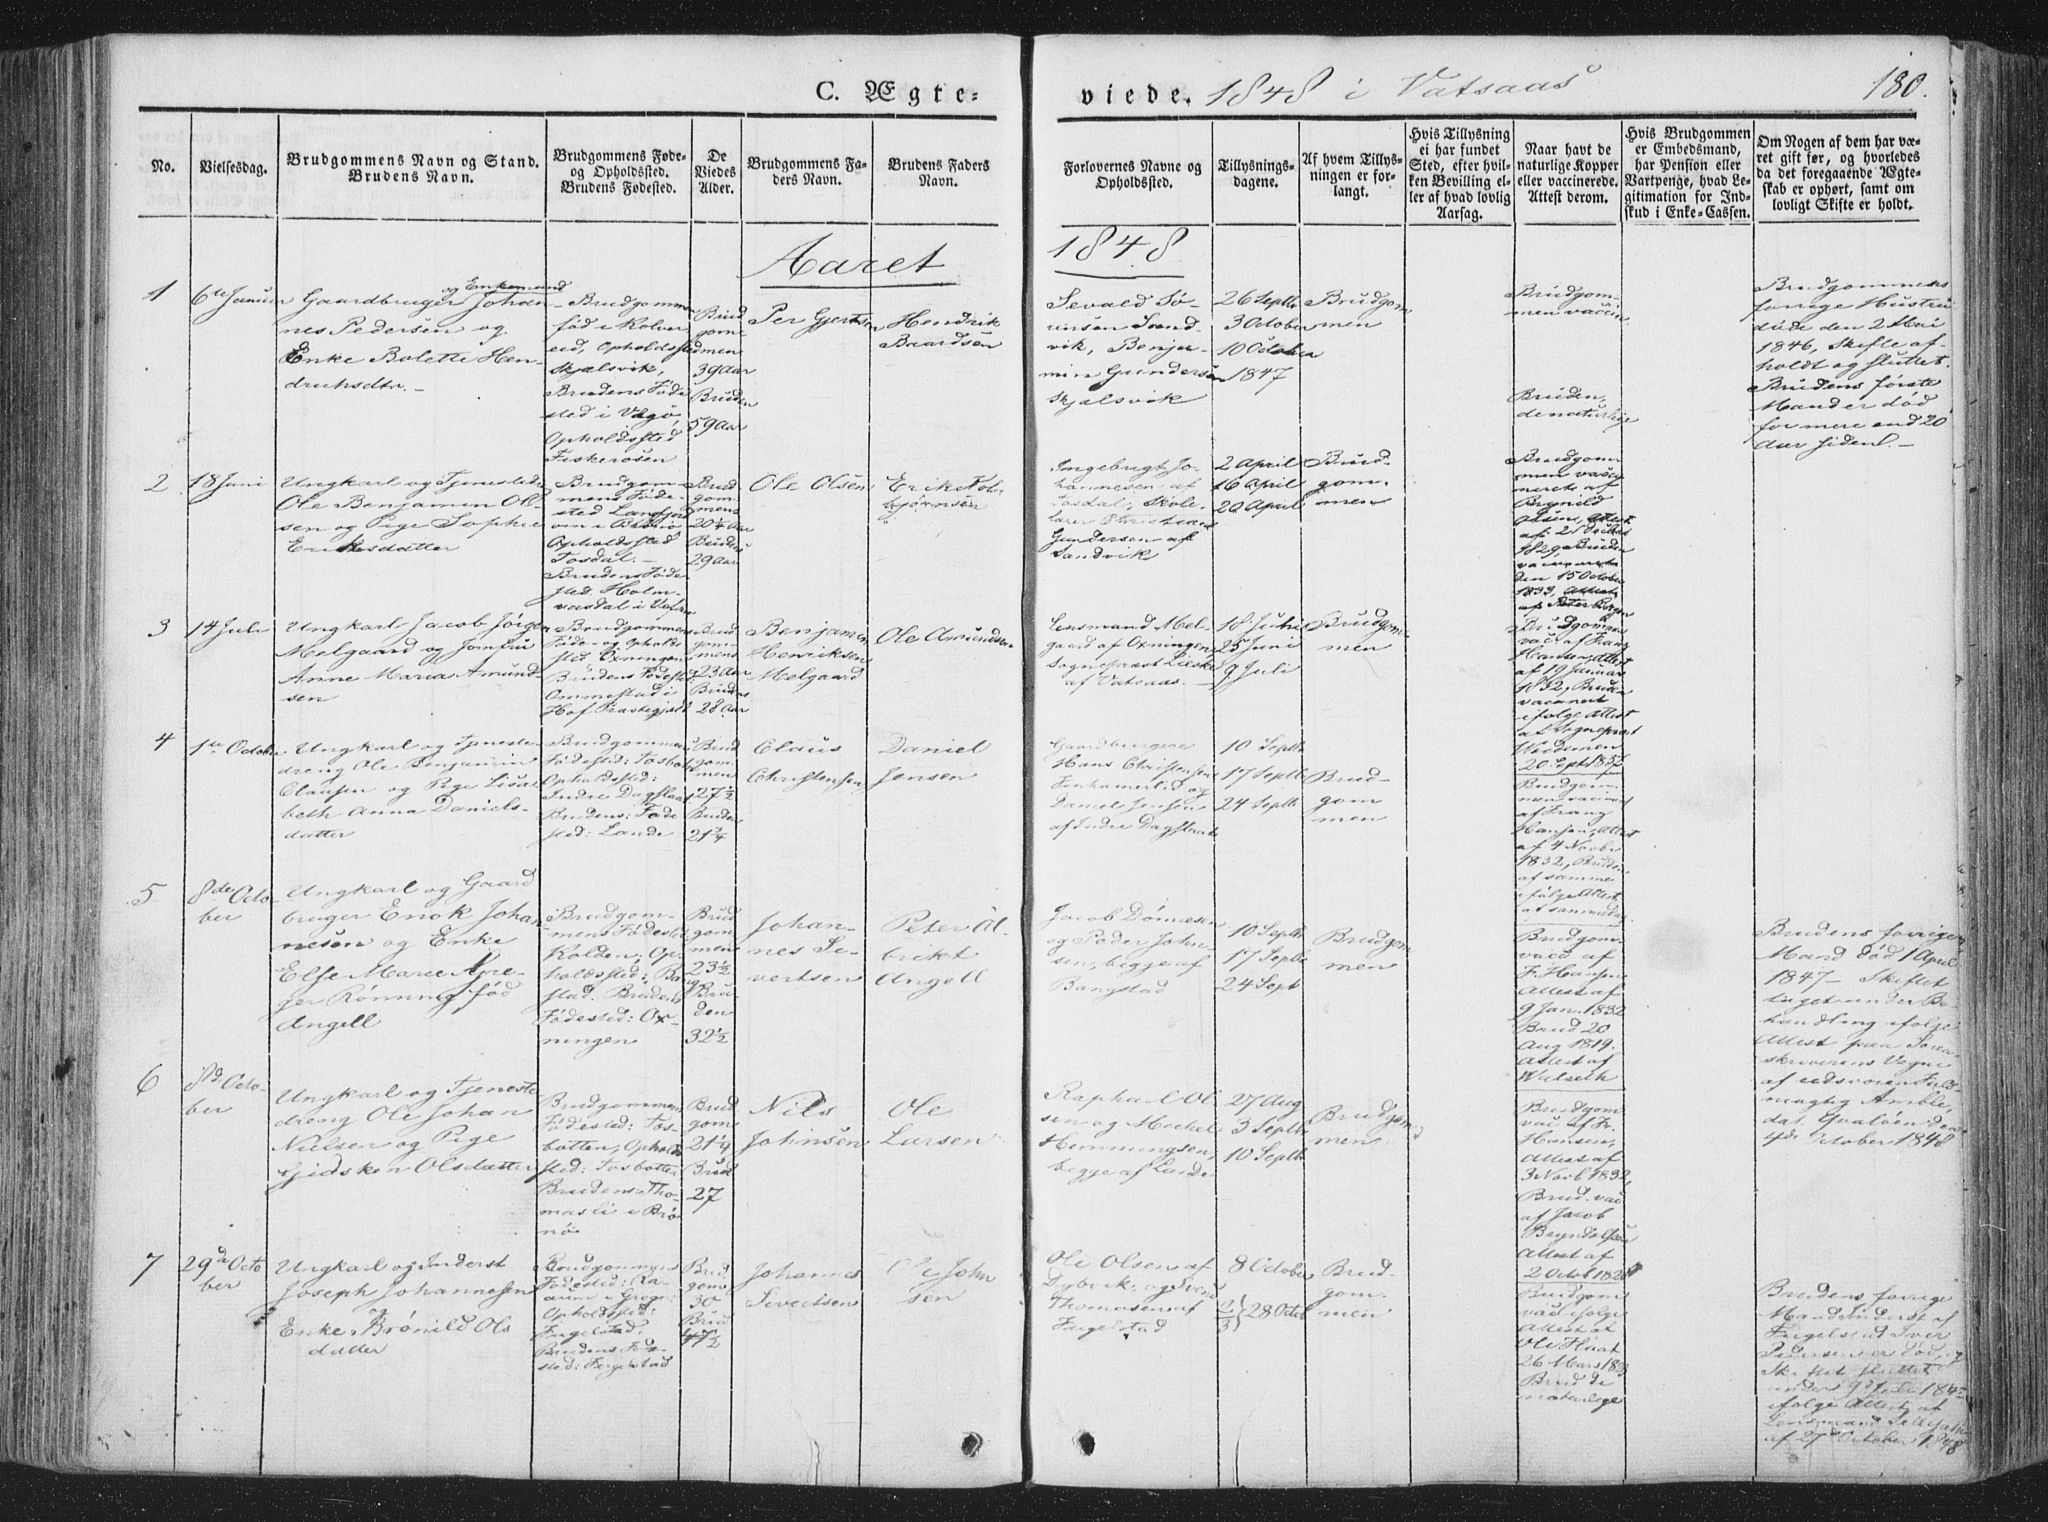 C. Ægte=
viede. 1848 i Vatsaas
180.
No.
Vielsesdag.
Brudgommens Navn og Stand.
Brudens Navn.
Brudgommens Føde-
og Opholdssted.
Brudens Fødested.
De
Viedes
Alder.
Brudgommens Fa-
ders Navn.
Brudens Faders
Navn.
Forlovernes Navne og
Opholdssted.
Tillysnings-
dagene.
Af hvem Tillys-
ningen er for-
langt.
Hvis Tillysning
ei har fundet
Sted, efter hvil-
ken Bevilling el-
ler af hvad lovlig
Aarsag.
Naar havt de
naturlige Kopper
eller vaccinerede.
Attest derom.
Hvis Brudgommen
er Embedsmand,
har Pension eller
Vartpenge, hvad Le-
gitimation for Ind-
skud i Enke-Cassen.
Om Nogen af dem har væ-
ret gift før, og hvorledes
da det foregaaende Ægte-
skab er ophørt, samt om
lovligt Skifte er holdt.
Aaret
1848
1
6te Januar
Gaardbruger og Enkemand Johan-
nes Pedersen og
Enke Bolette Hen-
druksdtr.
Brudgommen
fød i Kolver
eid, Opholdssted
Skjælsvik,
Brudens Føde
sted i Vegø,
Opholdssted
Fiskerosen
Brud
gom
men
39 Aar
Bruden
59 Aar
Per Gjertsen
Hendrik
Baardsen
Sevald Sø-
rensen Sand-
vik, Benja-
min Gundersen
Skjælsvik
26 Septb
3 October
10 October
1847
Brudgom
men
Brudgom-
men vaccin
Bruden,
de naturlige
Brudgommens
forrige Hustru
døde den 2 Mai
1846, Skifte af-
holdt og sluttet.
Brudens første
Mand er død
for mere end 20
Aar siden. -
2
18 Juni
Ungkarl og Tjenestedr
Ole Benjamin Ol-
sen og Pige Sophie
Eriksdatter
Brudgom-
mens Føde-
sted Langfjord
Opholdssted
Tosdal. -
Brudens Føde
sted Holm-
vasdal i Vefsn
Brud
gom
mens
20¼ Aar
Brudens
29 Aar
Ole Olsen
Erik Kol-
bjørnsen
Ingebrigt Jo-
hannesen af
Tosdal, Skole-
lærer Christian
Gundersen af
Sandvik
2 April
16 April
20 April
Brud-
gom-
men
Brudgom
men vacci
neret af
Brynild
Olsen, Attest
1829, Bruden
den 15 October
1833, Attest
3
14 Juli
Ungkarl Jacob Jørgen
Melgaard og Jomfru
Anne Maria Amund-
sen
Brudgommens
Føde- og Opholds
sted Oxningen
Brudens Fødested
Ommestad i
Hof Præstegjæld
Brud-
gom-
mens
23 Aar
Brudens
28 Aar
Benjamin
Henriksen
Melgaard
Ole Amundsen
Lensmand Mel-
gaard af Oxningen,
Sognepræst
af Vatsaas. -
18 Juni
25 Juni
9 Juli
Brudgom
men
Brudgommen
vac. af Franz
Hansen, Attest
af 19 Januar
1832, Bruden
vaccineret
ifølge Attest
af Sogneprest
20 Sept 1837
4
1te October
Ungkarl og Tjeneste-
dreng Ole Benjamin
Clausen og Pige Lisa-
beth Anna Daniels-
datter
Brudgommens
Fødested: Tosbotn
Opholdssted:
Indre Dagslaat
Brudens Føde
sted: Lande
Brud
gom
men
27½
Bruden
21¾
Claus
Christensen
Daniel
Jensen
Gaardbrugere
Hans Christensen
Finhammerlid og
Daniel Jensen
af Indre Dagslaat
10 Septb
17 Septb
24 Septb
Brud-
gom
men
Brudgom-
men vaccineret
af Franz
Hansen, Attest
af 4 Novbr
1832, Bruden
af samme
ifølge Attest
af samme dag
5
8de Octo-
ber
Ungkarl og Gaard
bruger Enok Johan
nesen og Enke
Else Marie Gre-
ger Rønning fød
Angell
Brudgom-
mens Fødested
Kolden, Op-
holdssted: Bang
stad. Brudens
Fødested: Ox-
ningen
Brud
gom
men
23½
Bru-
den
32½
Johan-
nes Si-
vertsen
Peter Al-
brikt
Angell
Jacob Dønnesen
og Peder John-
sen, begge af
Bangstad
10 Septb
17 Septb
24 Sept
Brudgom
men
Brudgom
vacc af
F. Hansen
Attest af
9 Jan. 1832
Brud 20
Aug 1819.
Attest af
Walseth
Brudens forrige
Mand død 1 April
1847 - Skiftet
taget under Be-
handling ifølge
Attest paa Soren-
skriverens Vegne
af edsvoren Fuld-
mægtig Amble,
dat. Qvaløen den
4de October 1848
6
8de Octo-
ber
Ungkarl og Tjeneste
dreng Ole Johan
Nielsen og Pige
Gidsken Olsdatter
Brudgommens
Fødested: Tos-
botten, Opholds
sted: Tosbotten
Brudens: Tho-
masli i Brø
nø
Brud
gom
21¼
Brud
27
Nils
Johnsen
Ole
Larsen
Raphael Ol
sen og Mickel
Hemmingsen,
begge af Lande
27 Aug
3 Septb
10 Septb
Brudgom
men
Brudgom
vac af Fr.
Hansen,
Attest af
3 Novb 1832,
Brud. vac
af Jacob
Attest af
2 Octob 1828
7
29de Octo
ber
Ungkarl og Inderst
Joseph Johannesen
og
Enke Brønild Ols
datter
Brudgommens
Fødested: Ra-
num i Grong
Opholdssted:
Fergelstad.
Brudens Føde-
sted: Fergelstad
Brud
gom
30
Brud
47½
Johannes
Sivertsen
Ole John
sen
Ole Olsen af
Dybvik, og Svend
Thomasen af
Fergelstad
8 October
2/3 } 28 Octob
Brud-
gom-
men
Brudgom
vac ifølge
Attest af
Ole Huat
26 Mars
Brud de
naturlige
Brudens forrige
Mand Inderst af
Fergelstad Iver
Pedersen er død, og
Skiftet sluttet
under 9de Juli
ifølge Attest af
Lensmand
af 27de October 1848